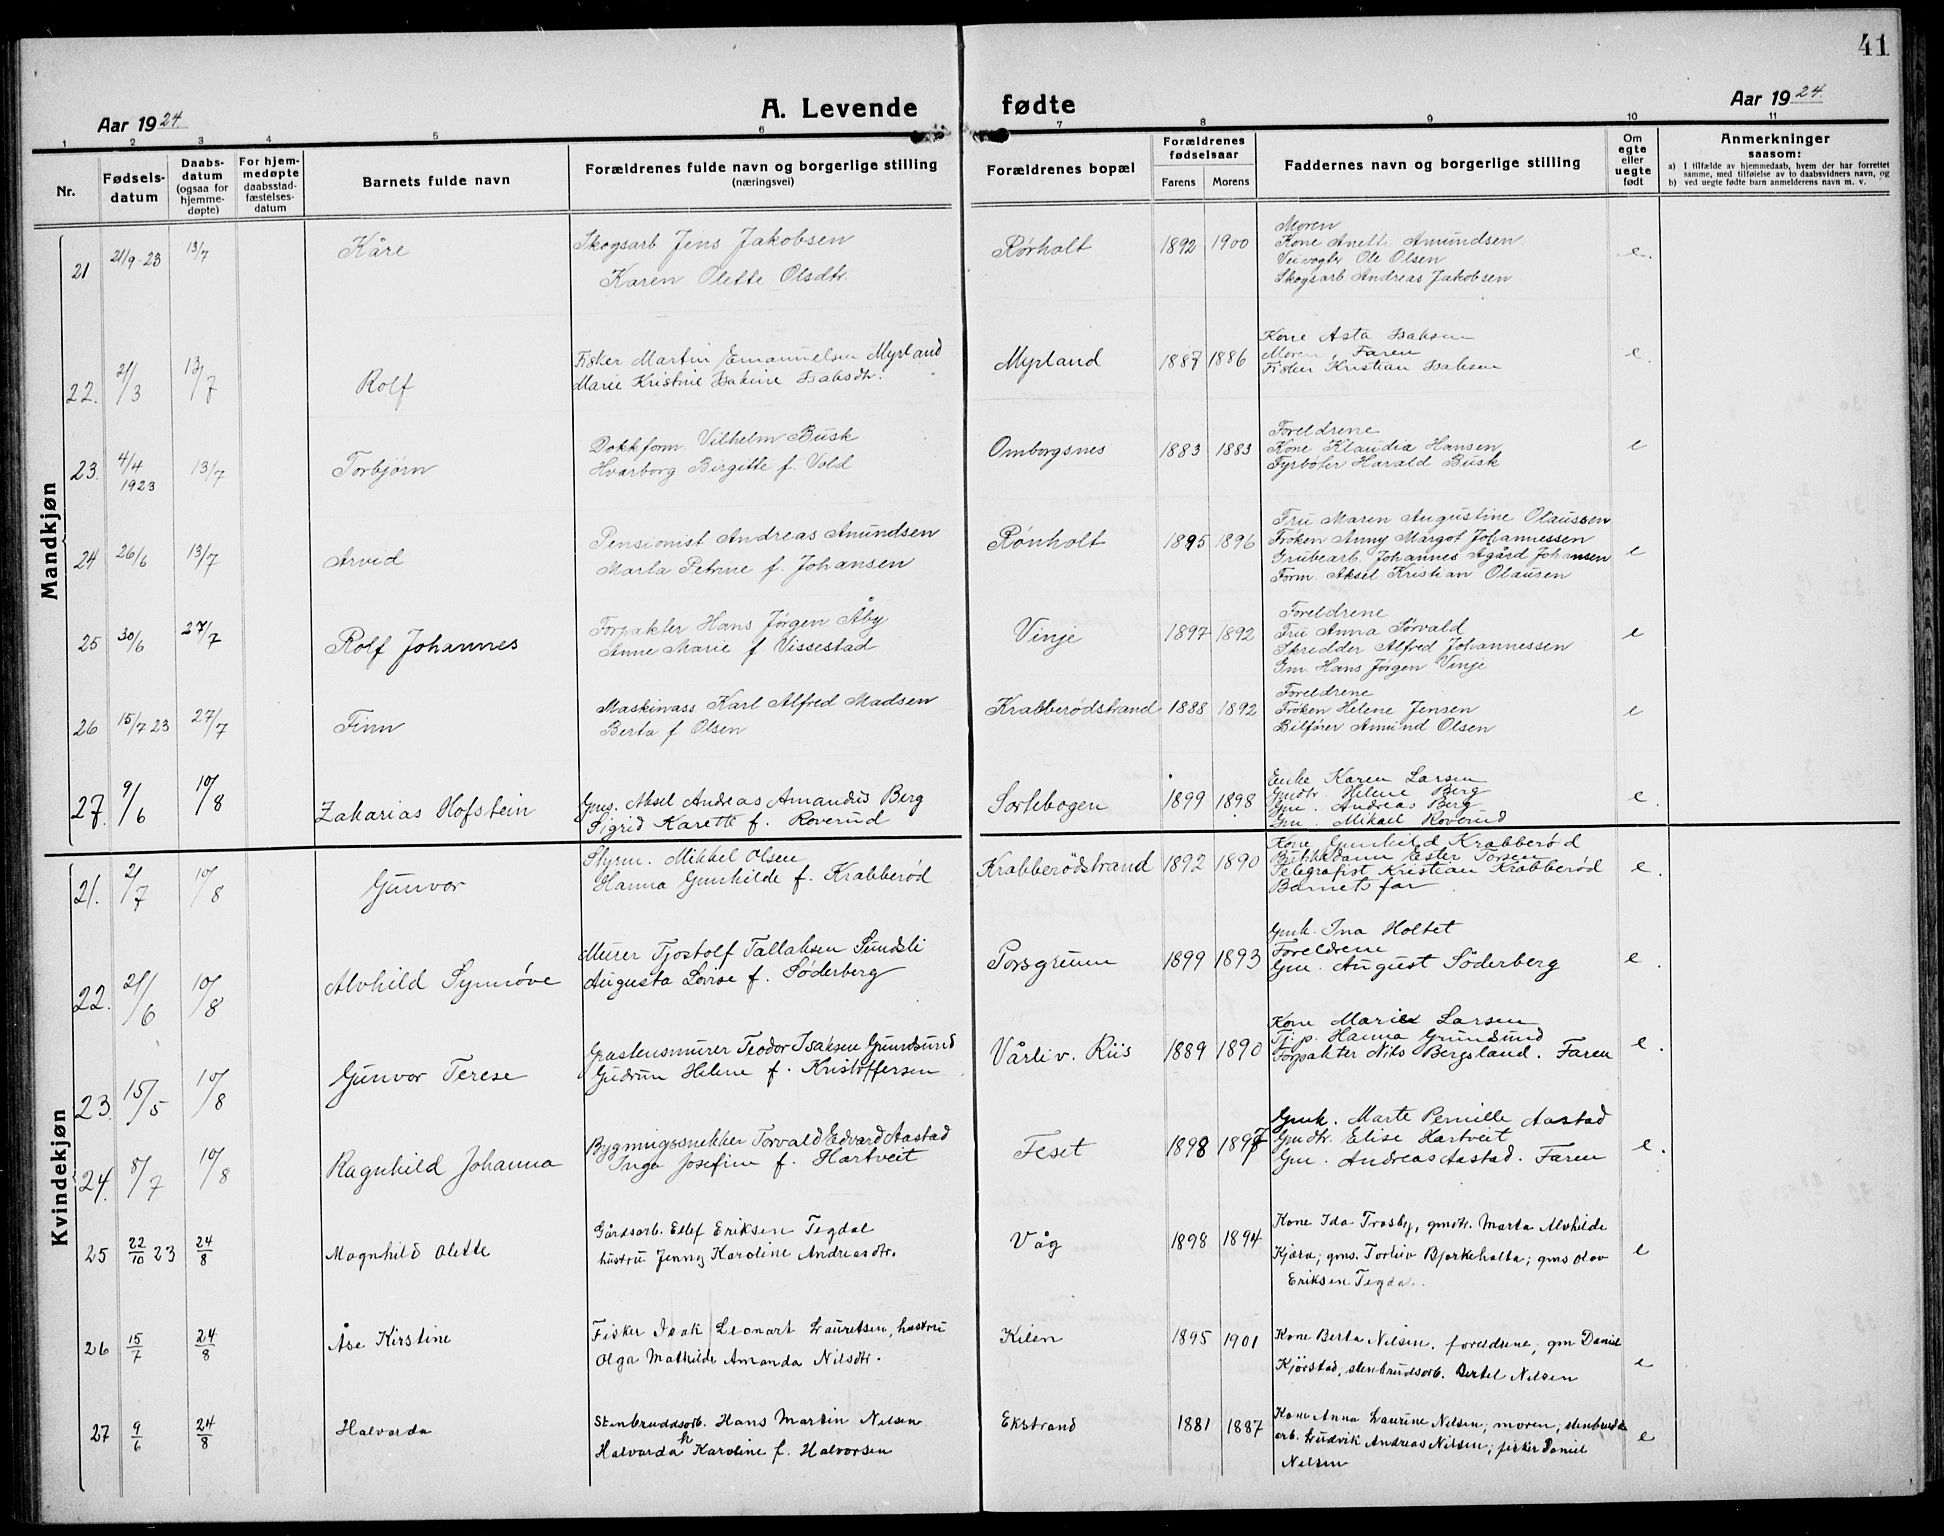 41
Aar 1924.
A. Levende fødte
Aar 1924.
1 2 3 4 5 6 7 8 9 10 11
Nr.
Fødsels-
datum
Daabs-
datum
(ogsaa for
hjemme-
døpte)
For hjem-
medøpte
daabsstad-
fæstelses-
datum
Barnets fulde navn
Forældrenes fulde navn og borgerlige stilling
(næringsvei)
Forældrenes bopæl
Forældrenes
fødselsaar
Farens Morens
Faddernes navn og borgerlige stilling
Om
egte
eller
uegte
født
Anmerkninger
saasom:
a) I tilfælde av hjemmedaab, hvem der har forrettet
samme, med tilføielse av to daabsvidners navn, og
b) ved uegte fødte barn anmelderens navn m. v.
Mandkjøn
21 21/9-23 13/7 Kåre
Skogsarb Jens Jakobsen
Karen Olette Olsdtr.
Rørholt 1892 1900
Moren
Kone Anette Amundsen
Veivogter Ole Olsen
Skogsarb Andreas Jakobsen
e.
22. 21/3 13/7 Rolf
Fisker Martin Emanuelsen Myrland
Marie Kristine Isakine Isaksdtr.
Myrland 1887 1886
Kone Asta Isaksen
Moren, Faren
Fisker Kristian Isaksen
e.
23. 4/4 1923 13/7 Torbjørn
Dokkform. Vilhelm Busk
Hvarborg Birgitte f. Vold
Omborgsnes 1883 1883
Foreldrene
Kone Klaudia Hansen
Fyrbøter Harald Busk
e
24 26/6 13/7 Arvid
Pensionist Andreas Amundsen
Marta Petrine f. Johansen
Rønholt 1895 1896
Fru Maren Augustine Olaussen
Frøken Anny Margot Johannessen
Grubearb. Johannes Agård Johansen
Form. Aksel Kristian Olausen
e
25 30/6 27/7 Rolf Johannes
Forpakter Hans Jørgen Åby
Anne Marie f. Vissestad
Vinje 1897 1892
Foreldrene
Fru Anna Sørvald
Skredder Alfred Johannessen
Gm. Hans Jørgen Vinje
e
26 15/7 23 27/7 Finn
Maskinass Karl Alfred Madsen
Berta f Olsen
Krabberødstrand 1888 1892
Foreldrene
Frøken Helene Jensen
Bilfører Amund Olsen
e
27. 9/6 10/8 Zakarias Hofstein
Gms. Aksel Andreas Amandus Berg
Sigrid Karette f. Roverud
Sortebogen 1899 1898
Enke Karen Larsen
Gmdtr. Helene Berg
Gm. Andreas Berg
Gm. Mikael Roverud
e.
Kvindekjøn
21. 2/7 10/8 Gunvor
Styrm. Mikkel Olsen
Hanna Gunhilde f. Krabberød
Krabberødstrand 1892 1890
Kone Gunhild Krabberød
Butikkdame Ester Torsen
Telegrafist Kristian Krabberød
Barnets far
e.
22. 21/6 10/8 Alvhild Synnøve
Murer Tjostolf Tallaksen Sundsli
Augusta Lovise f. Söderberg
Porsgrunn 1899 1893
Gmk. Ina Holtet
Foreldrene
Gm. August Söderberg
e.
23. 15/5 10/8 Gunvor Terese
Graastensmurer Teodor Isaksen Grundsund
Gudrun Helene f. Kristoffersen
Vårli v. Riis 1889 1890
Kone Marie Larsen
Tj.p. Hanna Grundsund
Forpakter Nils Bergsland. Faren
e.
24. 8/7 10/8 Ragnhild Johanna
Bygningssnekker Torvald Edvard Aastad
Inga Josefine f. Hartveit
Feset 1898 1897
Gmk. Marte Pernille Aastad
Gmdtr. Elise Hartveit
Gm. Andreas Aastad. Faren
e.
25 22/10 23 24/8 Magnhild Olette
Gårdsarb. Ellef Eriksen Tegdal
hustru Jenny Karoline Andreasdtr.
Våg 1898 1894
Kone Ida Trosby, gmdtr. Marta Alvhilde
Kjæra; gms. Torleiv Bjerkeholta; gms Olav
Eriksen Tegda..
e
26 15/7 24/8 Åse Kirstine
Fisker Isak Leonart Lauretsen, hustru
Olga Mathilde Amanda Nilsdtr.
Kilen 1895 1901
Kone Berta Nilsen, foreldrene, gm Daniel
Kjørstad, stenbrudsarb. Bertel Nilsen
e
27 9/6 24/8 Halvarda
Stenbruddsarb. Hans Martin Nilsen
h
Halvarda Karoline f. Halvorsen
Ekstrand 1881 1887
Kone Anna Laurine Nilsen; moren; stenbrudd
arb. Ludvik Andreas Nilsen; fisker Daniel
Nilsen
e